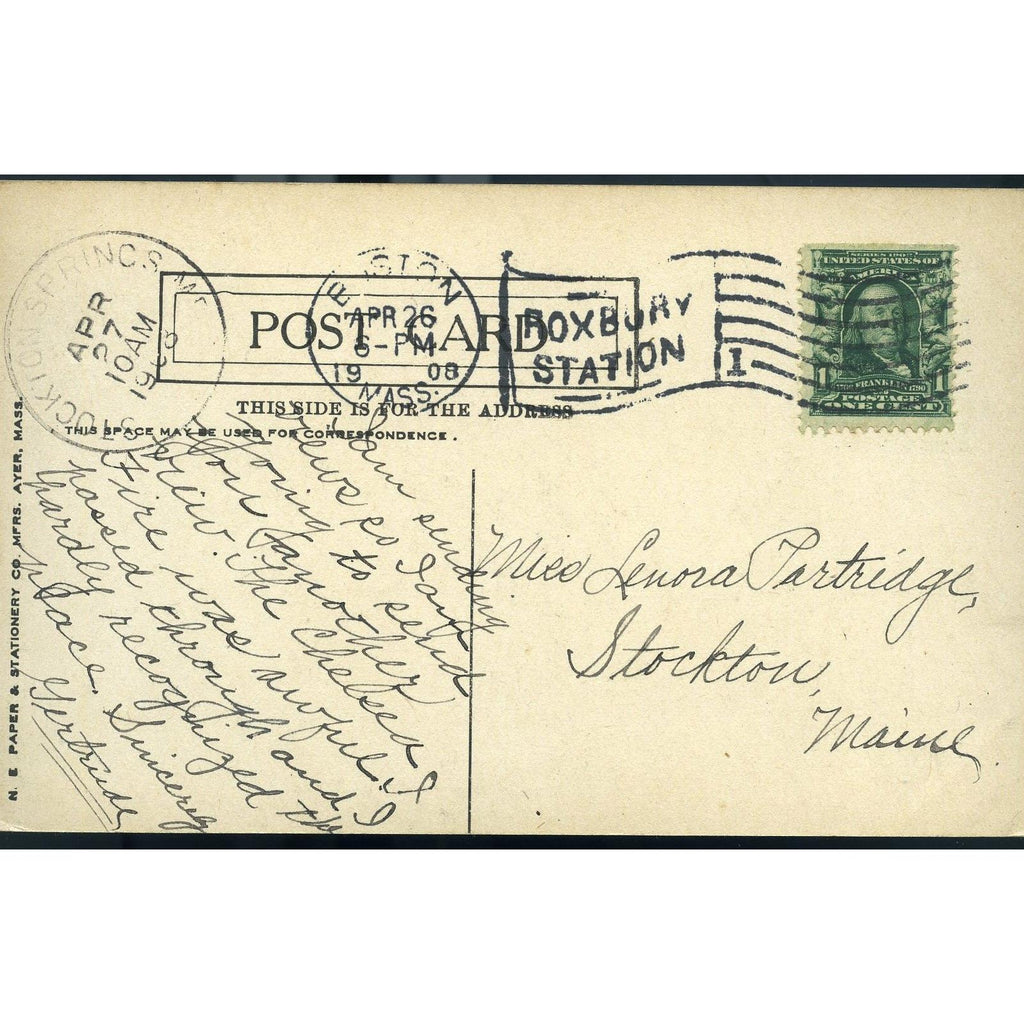 STOCKTON SPRINGS, ME.
APR
27
10AM
1908
BOSTON
APR 26
6-PM
19 08
MASS.
ROXBURY
STATION
1
SERIES 1902
UNITED STATES OF
AMERICA
1 FRANKLIN 1790 1
POSTAGE
ONE CENT
POST CARD
THIS SIDE IS FOR THE ADDRESS
THIS SPACE MAY BE USED FOR CORRESPONDENCE.
N. E PAPER & STATIONERY CO. MFRS. AYER, MASS.
am sending
views so I am
going to send
you another
view. The Chelsea
Fire was awful. I
passed through and I
hardly recognized the
place. Sincerely
Gertrude
Miss Lenora Partridge,
Stockton,
Maine